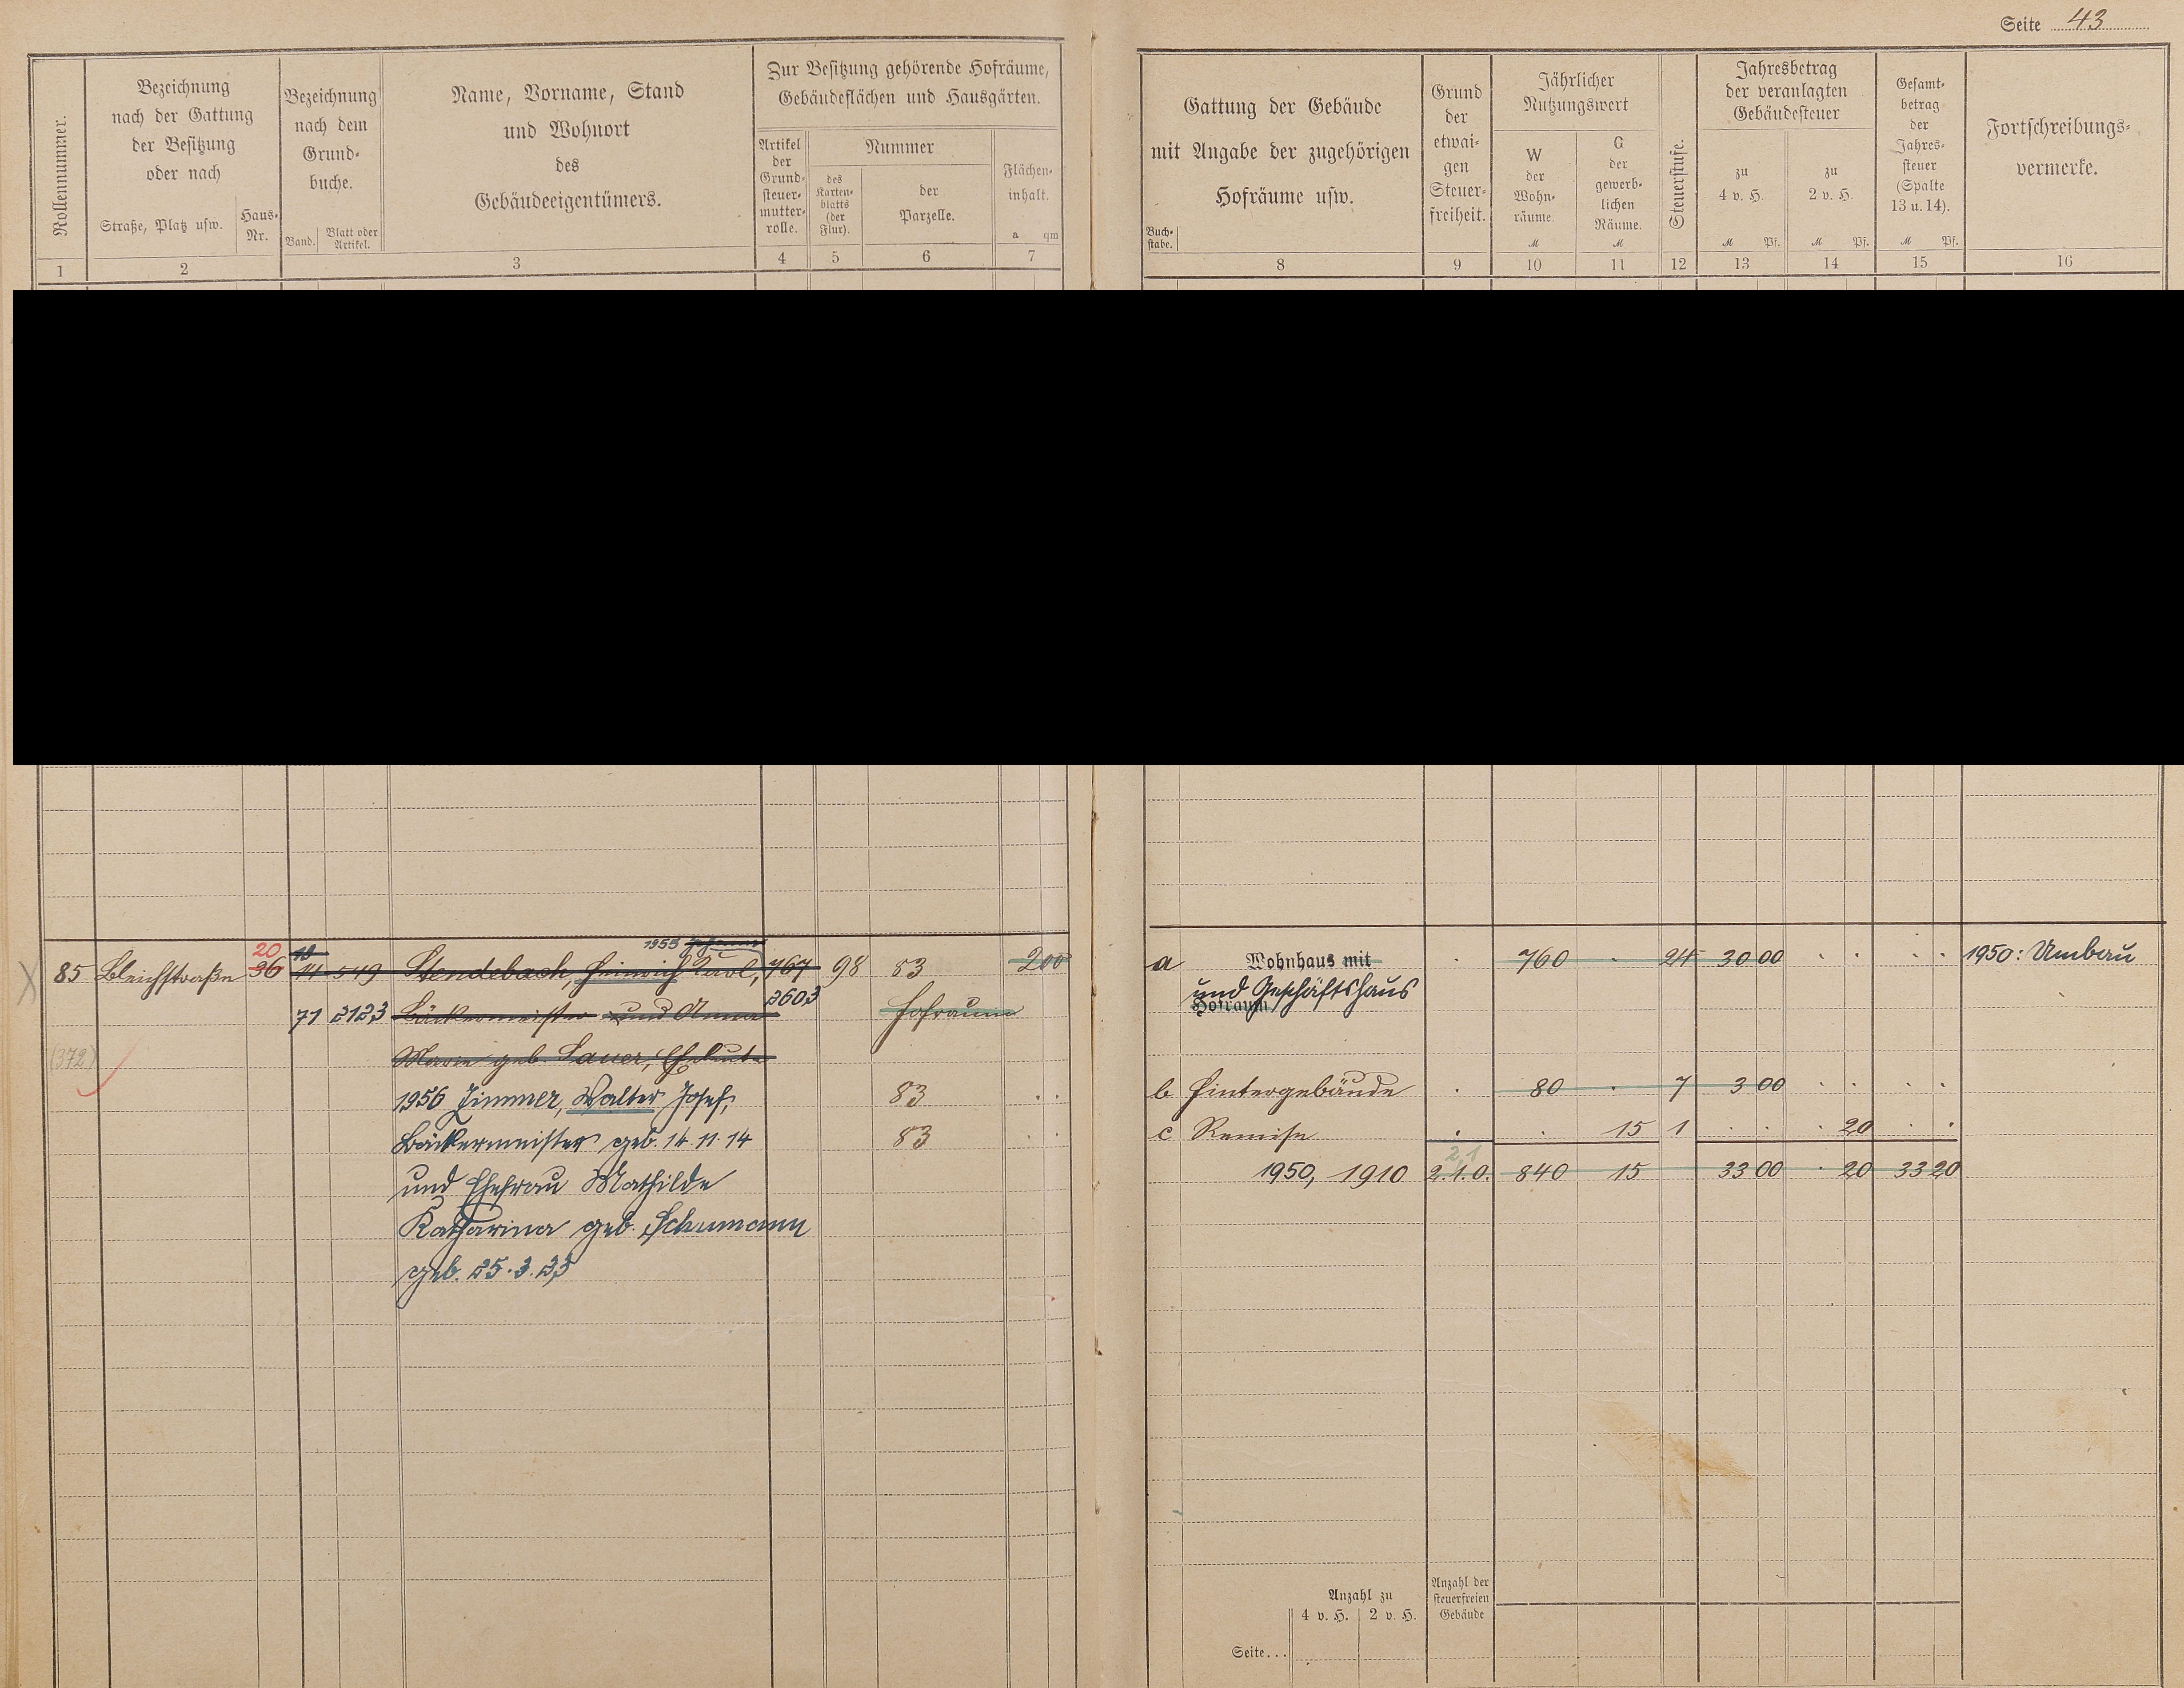 Seite 43
Rollennummer.
Bezeichnung
nach der Gattung
der Besitzung
oder nach
Straße, Platz usw.
Haus-
Nr.
Bezeichnung
nach dem
Grund-
buche.
Band.
Blatt oder
Artikel.
Name, Vorname, Stand
und Wohnort
des
Gebäudeeigentümers.
Zur Besitzung gehörende Hofräume,
Gebäudeflächen und Hausgärten.
Artikel
der
Grund-
steuer-
mutter-
rolle.
Nummer
des
Karten-
blatts
(der
Flur).
der
Parzelle.
Flächen-
inhalt.
a qm
1 2 3 4 5 6 7
Gattung der Gebäude
mit Angabe der zugehörigen
Hofräume usw.
Buch-
stabe.
Grund
der
etwai-
gen
Steuer-
freiheit.
Jährlicher
Nutzungswert
W
der
Wohn-
räume.
M
G
der
gewerb-
lichen
Räume.
M
Steuerstufe.
Jahresbetrag
der veranlagten
Gebäudesteuer
zu
4 v. H.
M Pf.
zu
2 v. H.
M Pf.
Gesamt-
betrag
der
Jahres-
steuer
(Spalte
13 u. 14).
M Pf.
Fortschreibungs-
vermerke.
8 9 10 11 12 13 14 15 16
20 1953
85 Bleichstraße 36 11 549 Stendebach, Heinrich Karl, 767 98 83 2 00
71 2123 Bäckermeister und Anna 2603 Hofraum
(372) Marie geb. Lauer, Eheleute
1956 Zimmer, Walter Josef, 83
Bäckermeister geb. 14.11.14 83
und Ehefrau Mathilde
Katharina geb. Schumann
geb. 25.3.23
a Wohnhaus mit 760 24 30 00 1950: Umbau
und Geschäftshaus
Hofraum
b Hintergebäude 80 7 3 00
c Remise 15 1 20
2,1
1950, 1910 2.1.0. 840 15 33 00 20 33 20
Anzahl zu
4 v. H. 2 v. H.
Anzahl der
steuerfreien
Gebäude
Seite...